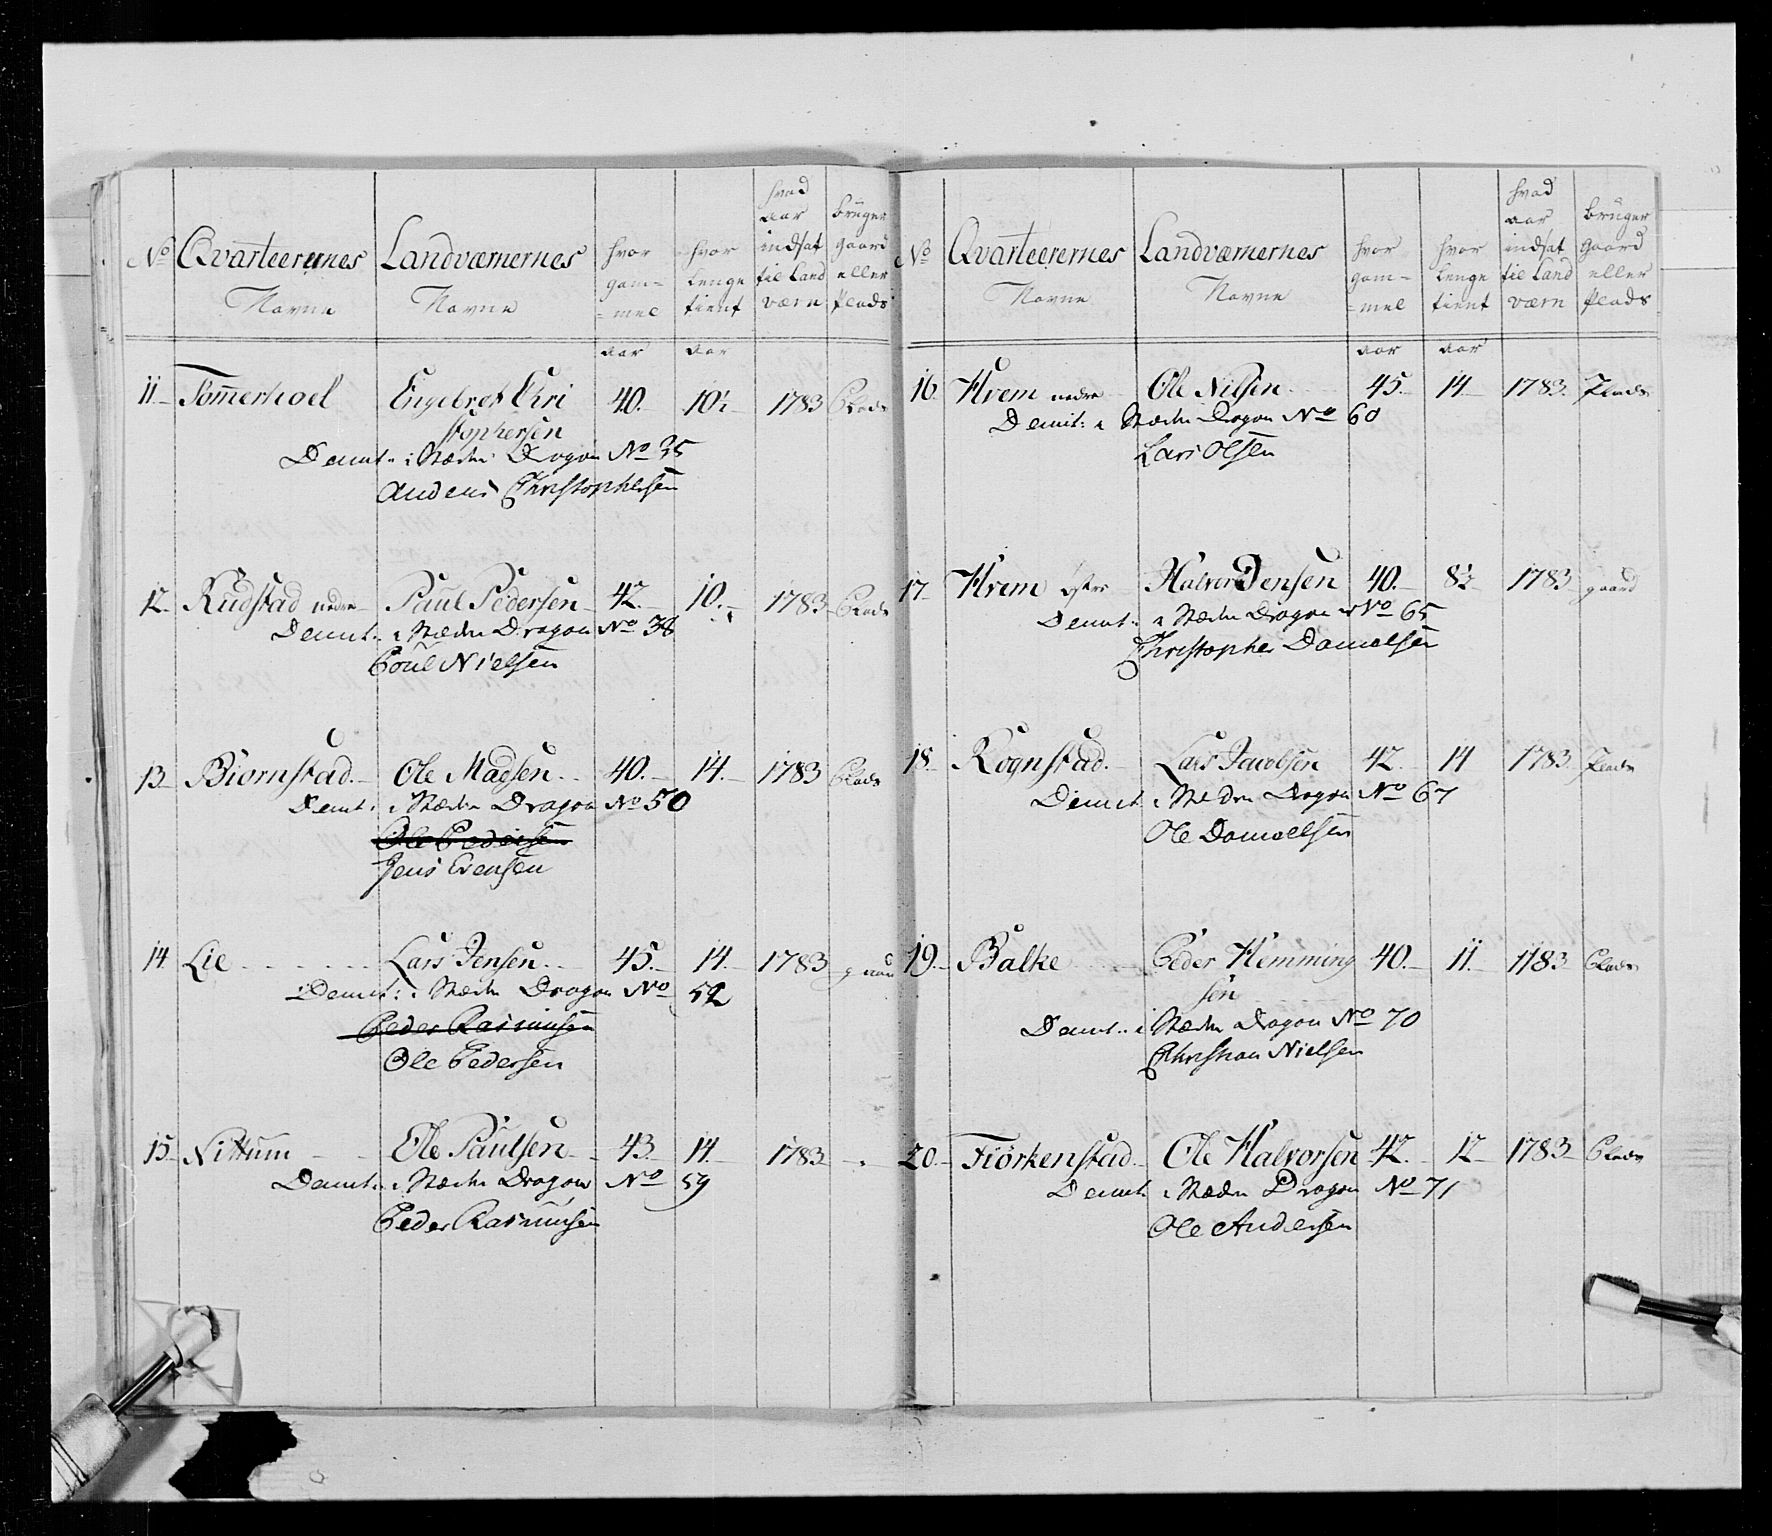 No Qvarteerernes Navne Landværnernes Navne hvor gam=mel hvor lenge tient hvad aar indsat til Land værn bruger gaard eller Plads
aar aar
11 Tømmerhoel Engelvet Chri 40. 10½ 1783 Plads
stophersen
Demit: i Stæden Dragon No 35
Anders Christophersen
12 Rudstad nedre Paul Pedersen 42. 10. 1783 Plads
Demit: i Stæden Dragon No 38
Poul Nielsen
13 Biørnstad Ole Madsen 40. 14. 1783 Plads
Demit: i Stæden Dragon No 50
Ole Pedersen
Jens Evensen
14 Lie Lars Jensen 45. 14. 1783 gaard
Demit: i Stæden Dragon No 52
Peder Rasmusen
Ole Pedersen
15 Nittum Ole Paulsen 43 14 1783
Demit: i Stæden Dragon No 59
Peder Rasmusen
No Qvarteerernes Navne Landværnernes Navne hvor gam=mel hvor lenge tient hvad aar indsat til Land værn bruger gaard eller Plads
aar aar
16 Hvem nedre Ole Nilsen 45. 14 1783. Plads
Demit: i Stæden Dragon No 60
Lars Olsen
17 Hvem øfre Halvor Jensen 40. 8½ 1783 gaard
Demit: i Stæden Dragon No 65
Christopher Danielsen
18 Rognstad Lars Jacobsen 42 14 1783 Plads
Demit i Stæden Dragon No 67
Ole Danielsen
19 Balke Peder Hemming 40. 11. 1783 Plads
sen
Demit: i Stæden Dragon No 70
Christian Nielsen
20 Fiørkenstad Ole Halvorsen 42. 12 1783 Plads
Demit: i Stæden Dragon No 71
Ole Andersen